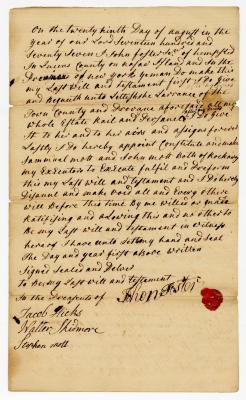 On the twenty ninth Day of august in the
year of our Lord Seventeen hundred and
Seventy Seven I John foster of hempsted
In Queens County on nasaw Island and In the
Provence of new york yeoman Do make this
my Last will and testament first I Do give
and Bequeath unto Larrance of the
Town County and Provane aforesaid all my
whole Estate Rail and Persanel I Do give
it to her and to her airs and assigns forever
Lastly I Do hereby appoint Constitute and make
Sammual mott and John mott Both of Rockaway
my Executors to Execute fulfil and
this my Last will and testament and I Do hereby
Disanul and make Void all and Every other
will Before this time By me willed or made
Ratifiing and alowing this and no other to
Be my Last will and testament in Witness
hereof I have unto Set my hand and Seal
The Day and year first above written
Signed Sealed and Deliver
to Be my Last will and testament
In the Preasents of John Foster
Jacob Hicks
Walter Skidmore
mott